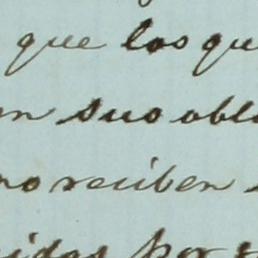 que los qu
n sus obl
no reciben
idas por